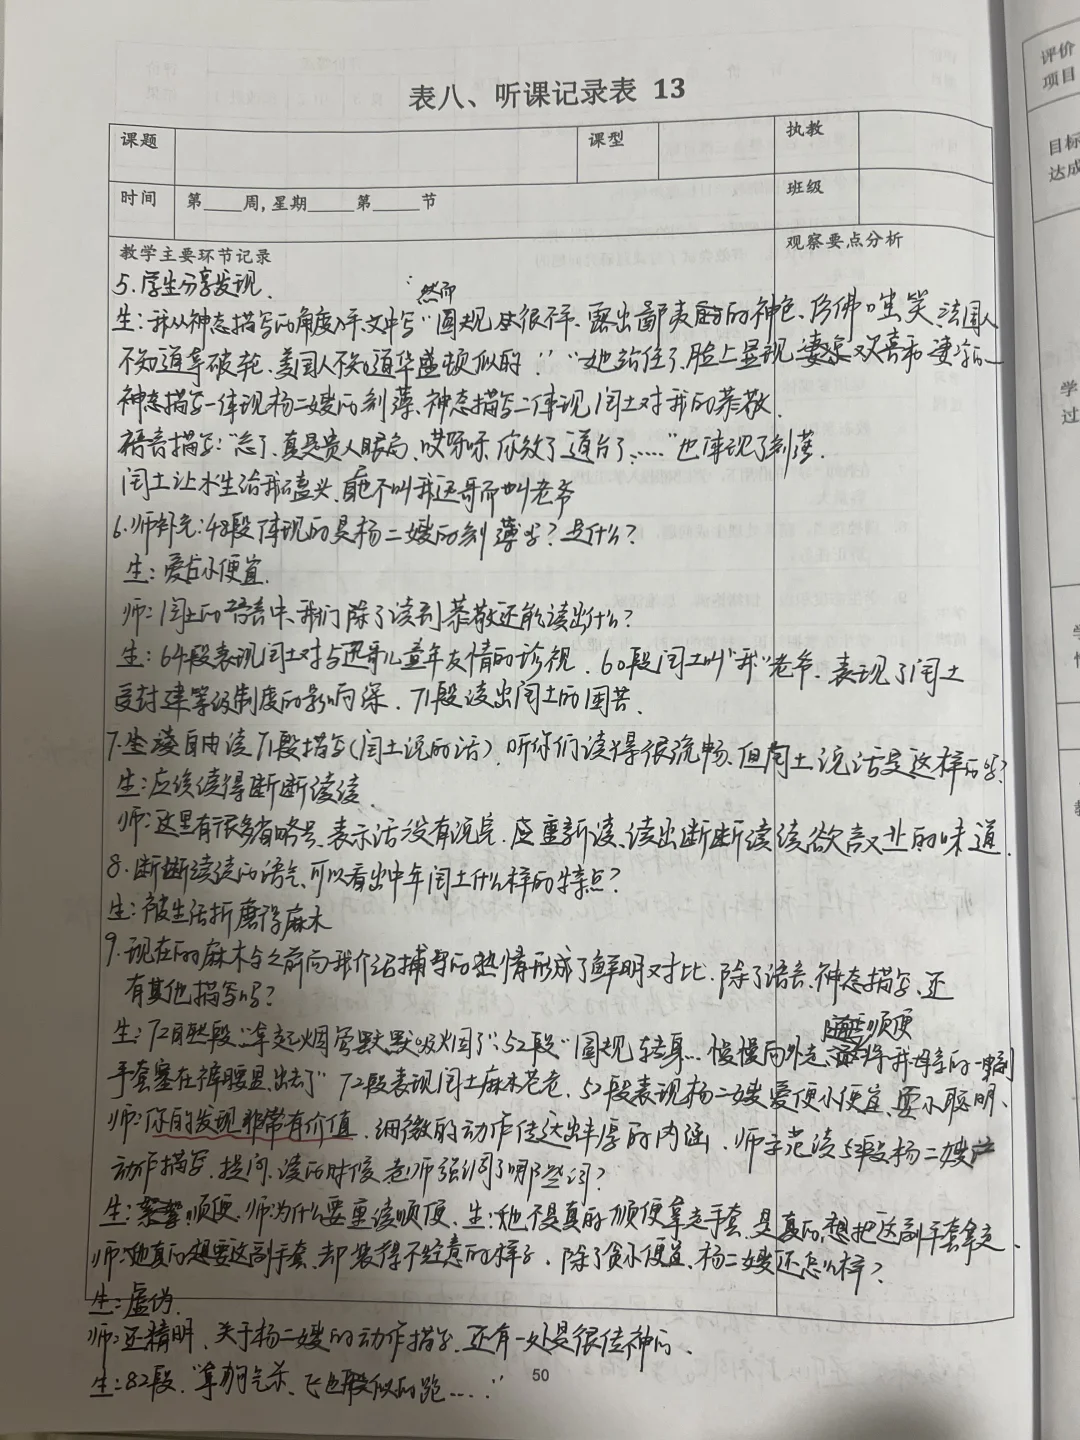 表八、听课记录表 13
课题 课型 执教
时间 第____周,星期____第____节 班级
教学主要环节记录 观察要点分析
5.学生分享发现.
然而
生:我从神态描写的角度入手,文中写"圆规 很不平、露出鄙夷的神色、仿佛嗤笑法国人
不知道拿破仑、美国人不知道华盛顿似的!""她站住了,脸上显现 欢喜和凄凉的
神态描写一体现杨二嫂的刻薄、神态描写二体现闰土对我的恭敬.
语言描写:"忘了,真是贵人眼高,哎呀呀你放了道台了……"也体现了刻薄.
闰土让水生给我磕头,他不叫我迅哥而叫老爷
6.师补充:48段体现的是杨二嫂的刻薄吗?是什么?
生:爱占小便宜.
师:闰土的语言中,我们除了读到恭敬还能读出什么?
生:64段表现闰土对与迅哥儿童年友情的珍视.60段闰土叫"我"老爷、表现了闰土
受封建等级制度的影响深.71段读出闰土的困苦.
7. 自由读71段描写(闰土说的话).听你们读得很流畅、但闰土说话是这样的吗?
生:应该读得断断续续.
师:这里有很多省略号、表示话没有说完. 重新读、读出断断续续欲言又止的味道.
8.断断续续的语气,可以看出中年闰土什么样的特点?
生:被生活折磨得麻木
9.现在的麻木与之前向我介绍捕鸟的热情形成了鲜明对比.除了语言、神态描写、还
有其他描写吗?
顺便
生:72自然段"拿起烟管默默吸烟了";52段"圆规转身…慢慢向外走, 将我母亲的一副
手套塞在裤腰里,出去了"72段表现闰土麻木苍老.52段表现杨二嫂爱便小便宜、耍小聪明、
师:你的发现非常有价值.细微的动作传达出丰厚的内涵.师示范读52段杨二嫂
动作描写.提问.读的时候,老师强调了哪些词?
生: 顺便.师:为什么要重读顺便.生:她不是真的顺便拿走手套,是真的想把这副手套拿走.
师:她真的想要这副手套,却装得不经意的样子.除了贪小便宜、杨二嫂还怎么样?
生:虚伪.
师:还精明.关于杨二嫂的动作描写,还有一处是很传神的.
生:82段."拿狗气杀、飞也般似的跑……"
50
评价
项目
目标
达成
学
过